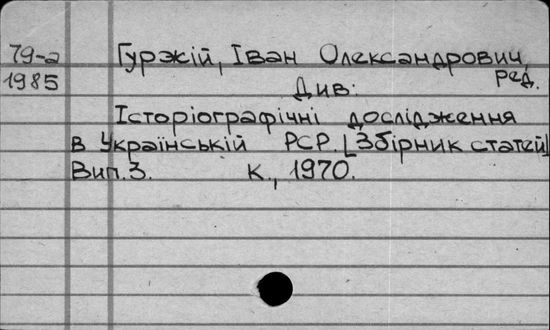 79-а Гуржій, Іван Олександрович,
1985 ред.
Див:
Історіографічні дослідження
в Українській РСР. [Збірник статей]
Вип. 3. К., 1970.